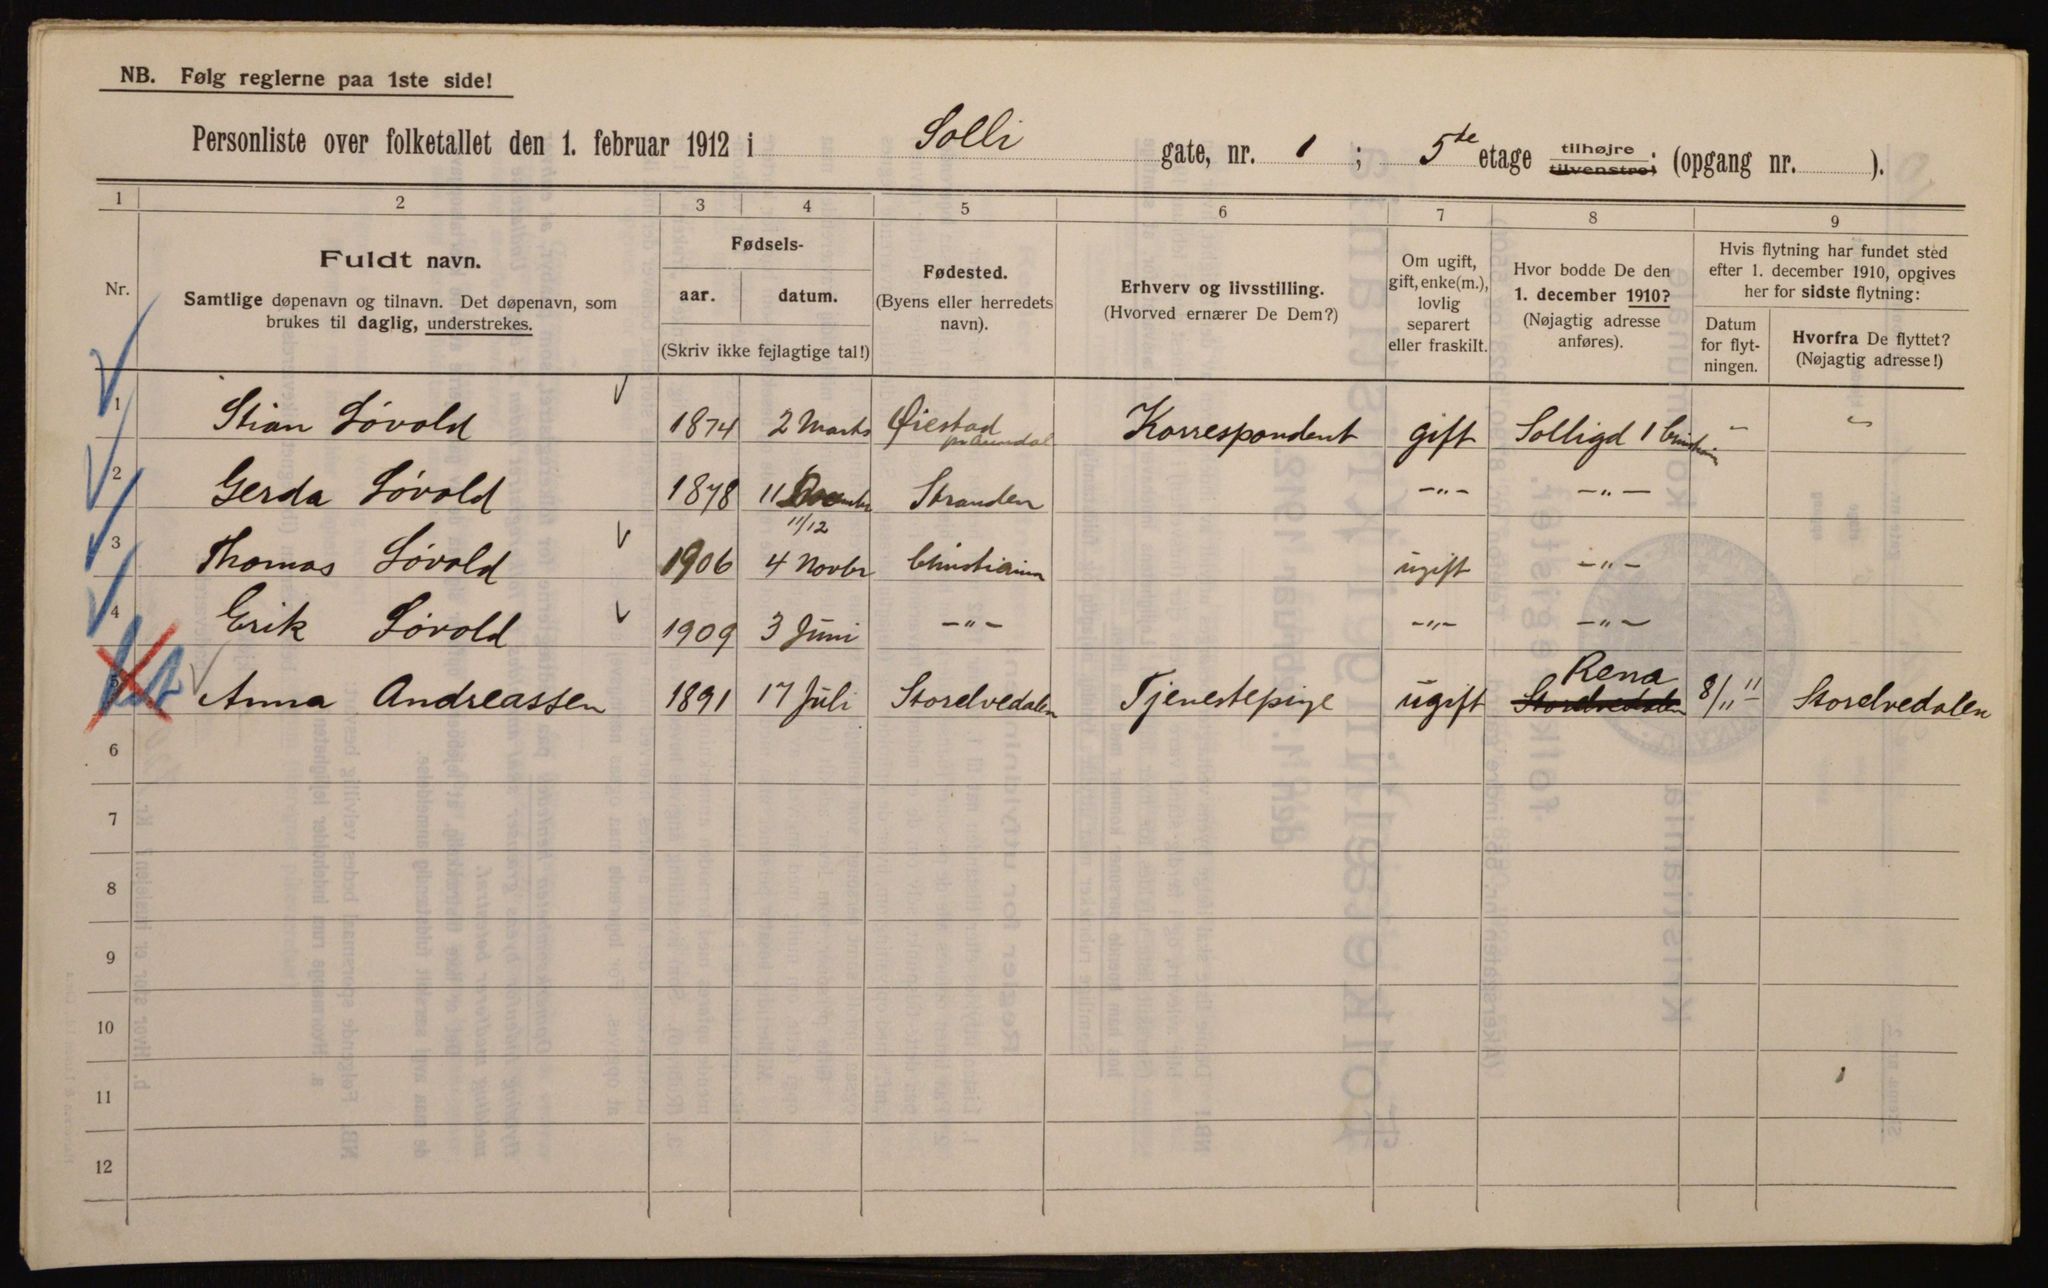 NB. Følg reglerne paa 1ste side!
Personliste over folketallet den 1. februar 1912 i Solli gate, nr. 1 ; 5te etage tilhøjre tilvenstre; (opgang nr. ).
1 2 3 4 5 6 7 8 9
Nr.
Fuldt navn.
Samtlige døpenavn og tilnavn. Det døpenavn, som
brukes til daglig, understrekes.
Fødsels-
aar. datum.
(Skriv ikke fejlagtige tal!)
Fødested.
(Byens eller herredets
navn).
Erhverv og livsstilling.
(Hvorved ernærer De Dem?)
Om ugift,
gift, enke(m.),
lovlig
separert
eller fraskilt.
Hvor bodde De den
1. december 1910?
(Nøjagtig adresse
anføres).
Hvis flytning har fundet sted
efter 1. december 1910, opgives
her for sidste flytning:
Datum
for flyt-
ningen.
Hvorfra De flyttet?
(Nøjagtig adresse!)
1 Stian Løvold 1874 2 Marts Øiestad pr Arendal Korrespondent gift Solligd 1 " "
2 Gerda Løvold 1878 11 11/12 Stranden -"- -"-
3 Thomas Løvold 1906 4 Novbr Christiania ugift -"-
4 Erik Løvold 1909 3 Juni -"- -"- -"-
5 Anna Andreassen 1891 17 Juli Storelvedalen Tjenestepige ugift Storelvedalen Rena 8/11 11 Storelvedalen
6
7
8
9
10
11
12